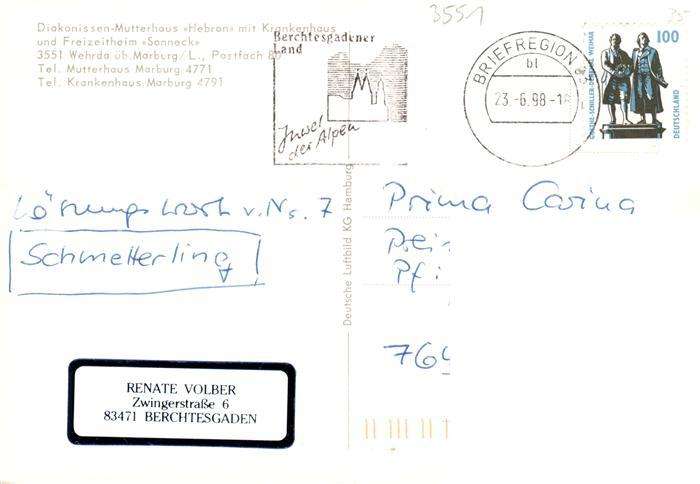 Diakonissen-Mutterhaus »Hebron« mit Krankenhaus
und Freizeitheim »Sonneck«
3551 Wehrda üb. Marburg/L., Postfach 80
Tel. Mutterhaus Marburg 4771
Tel. Krankenhaus Marburg 4791
3551
Berchtesgadener
Land
Juwel
der Alpen
BRIEFREGION 83
bl
23.-6.98-18
GOETHE-SCHILLER-DENKMAL WEIMAR
100
DEUTSCHLAND
Lösungswort v. Nr. 7
Schmetterling
Deutsche Luftbild KG Hamburg
Prima Carina
Pf
764
RENATE VOLBER
Zwingerstraße 6
83471 BERCHTESGADEN